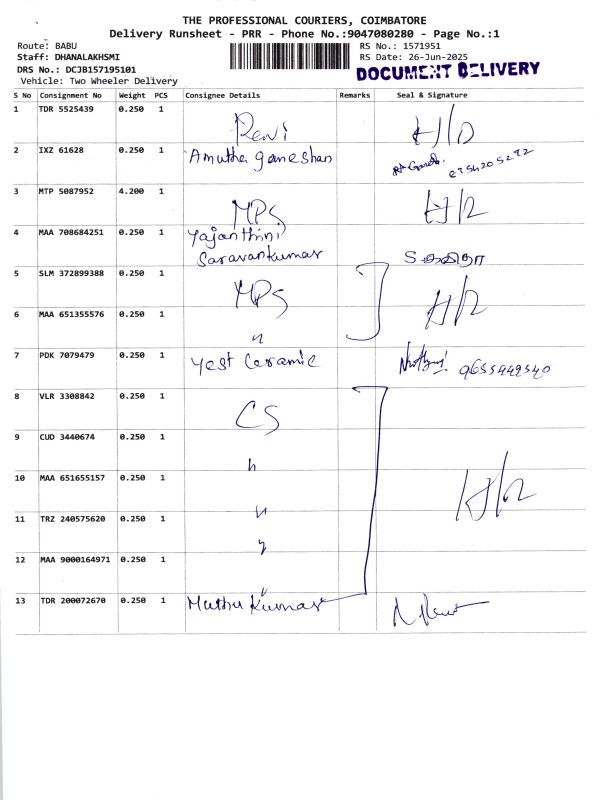 THE PROFESSIONAL COURIERS, COIMBATORE
Delivery Runsheet - PRR - Phone No.:9047080280 - Page No.:1
Route: BABU
RS No.: 1571951
Staff: DHANALAKHSMI
RS Date: 26-Jun-2025
DRS No.: DCJB157195101
DOCUMENT DELIVERY
Vehicle: Two Wheeler Delivery
S No Consignment No Weight PCS Consignee Details Remarks Seal & Signature
1 TDR 5525439 0.250 1 Revi H/D
2 IXZ 61628 0.250 1 Amutha ganeshan
3 MTP 5087952 4.200 1 MPS H/R
4 MAA 708684251 0.250 1 Yajanthini
Saravankumar
5 SLM 372899388 0.250 1 MPS H/R
6 MAA 651355576 0.250 1 "
7 PDK 7079479 0.250 1 Yest Ceramic 9655449540
8 VLR 3308842 0.250 1 CS
9 CUD 3440674 0.250 1 "
10 MAA 651655157 0.250 1 H/R
11 TRZ 240575620 0.250 1 "
12 MAA 9000164971 0.250 1 "
13 TDR 200072670 0.250 1 Muthu Kumar